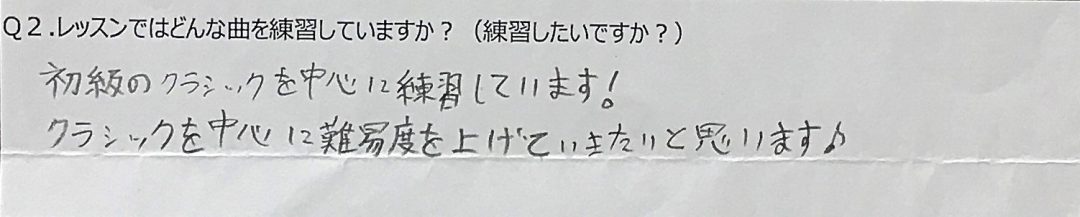 Q2.レッスンではどんな曲を練習していますか？（練習したいですか？）
初級のクラシックを中心に練習しています！
クラシックを中心に難易度を上げていきたいと思います♪